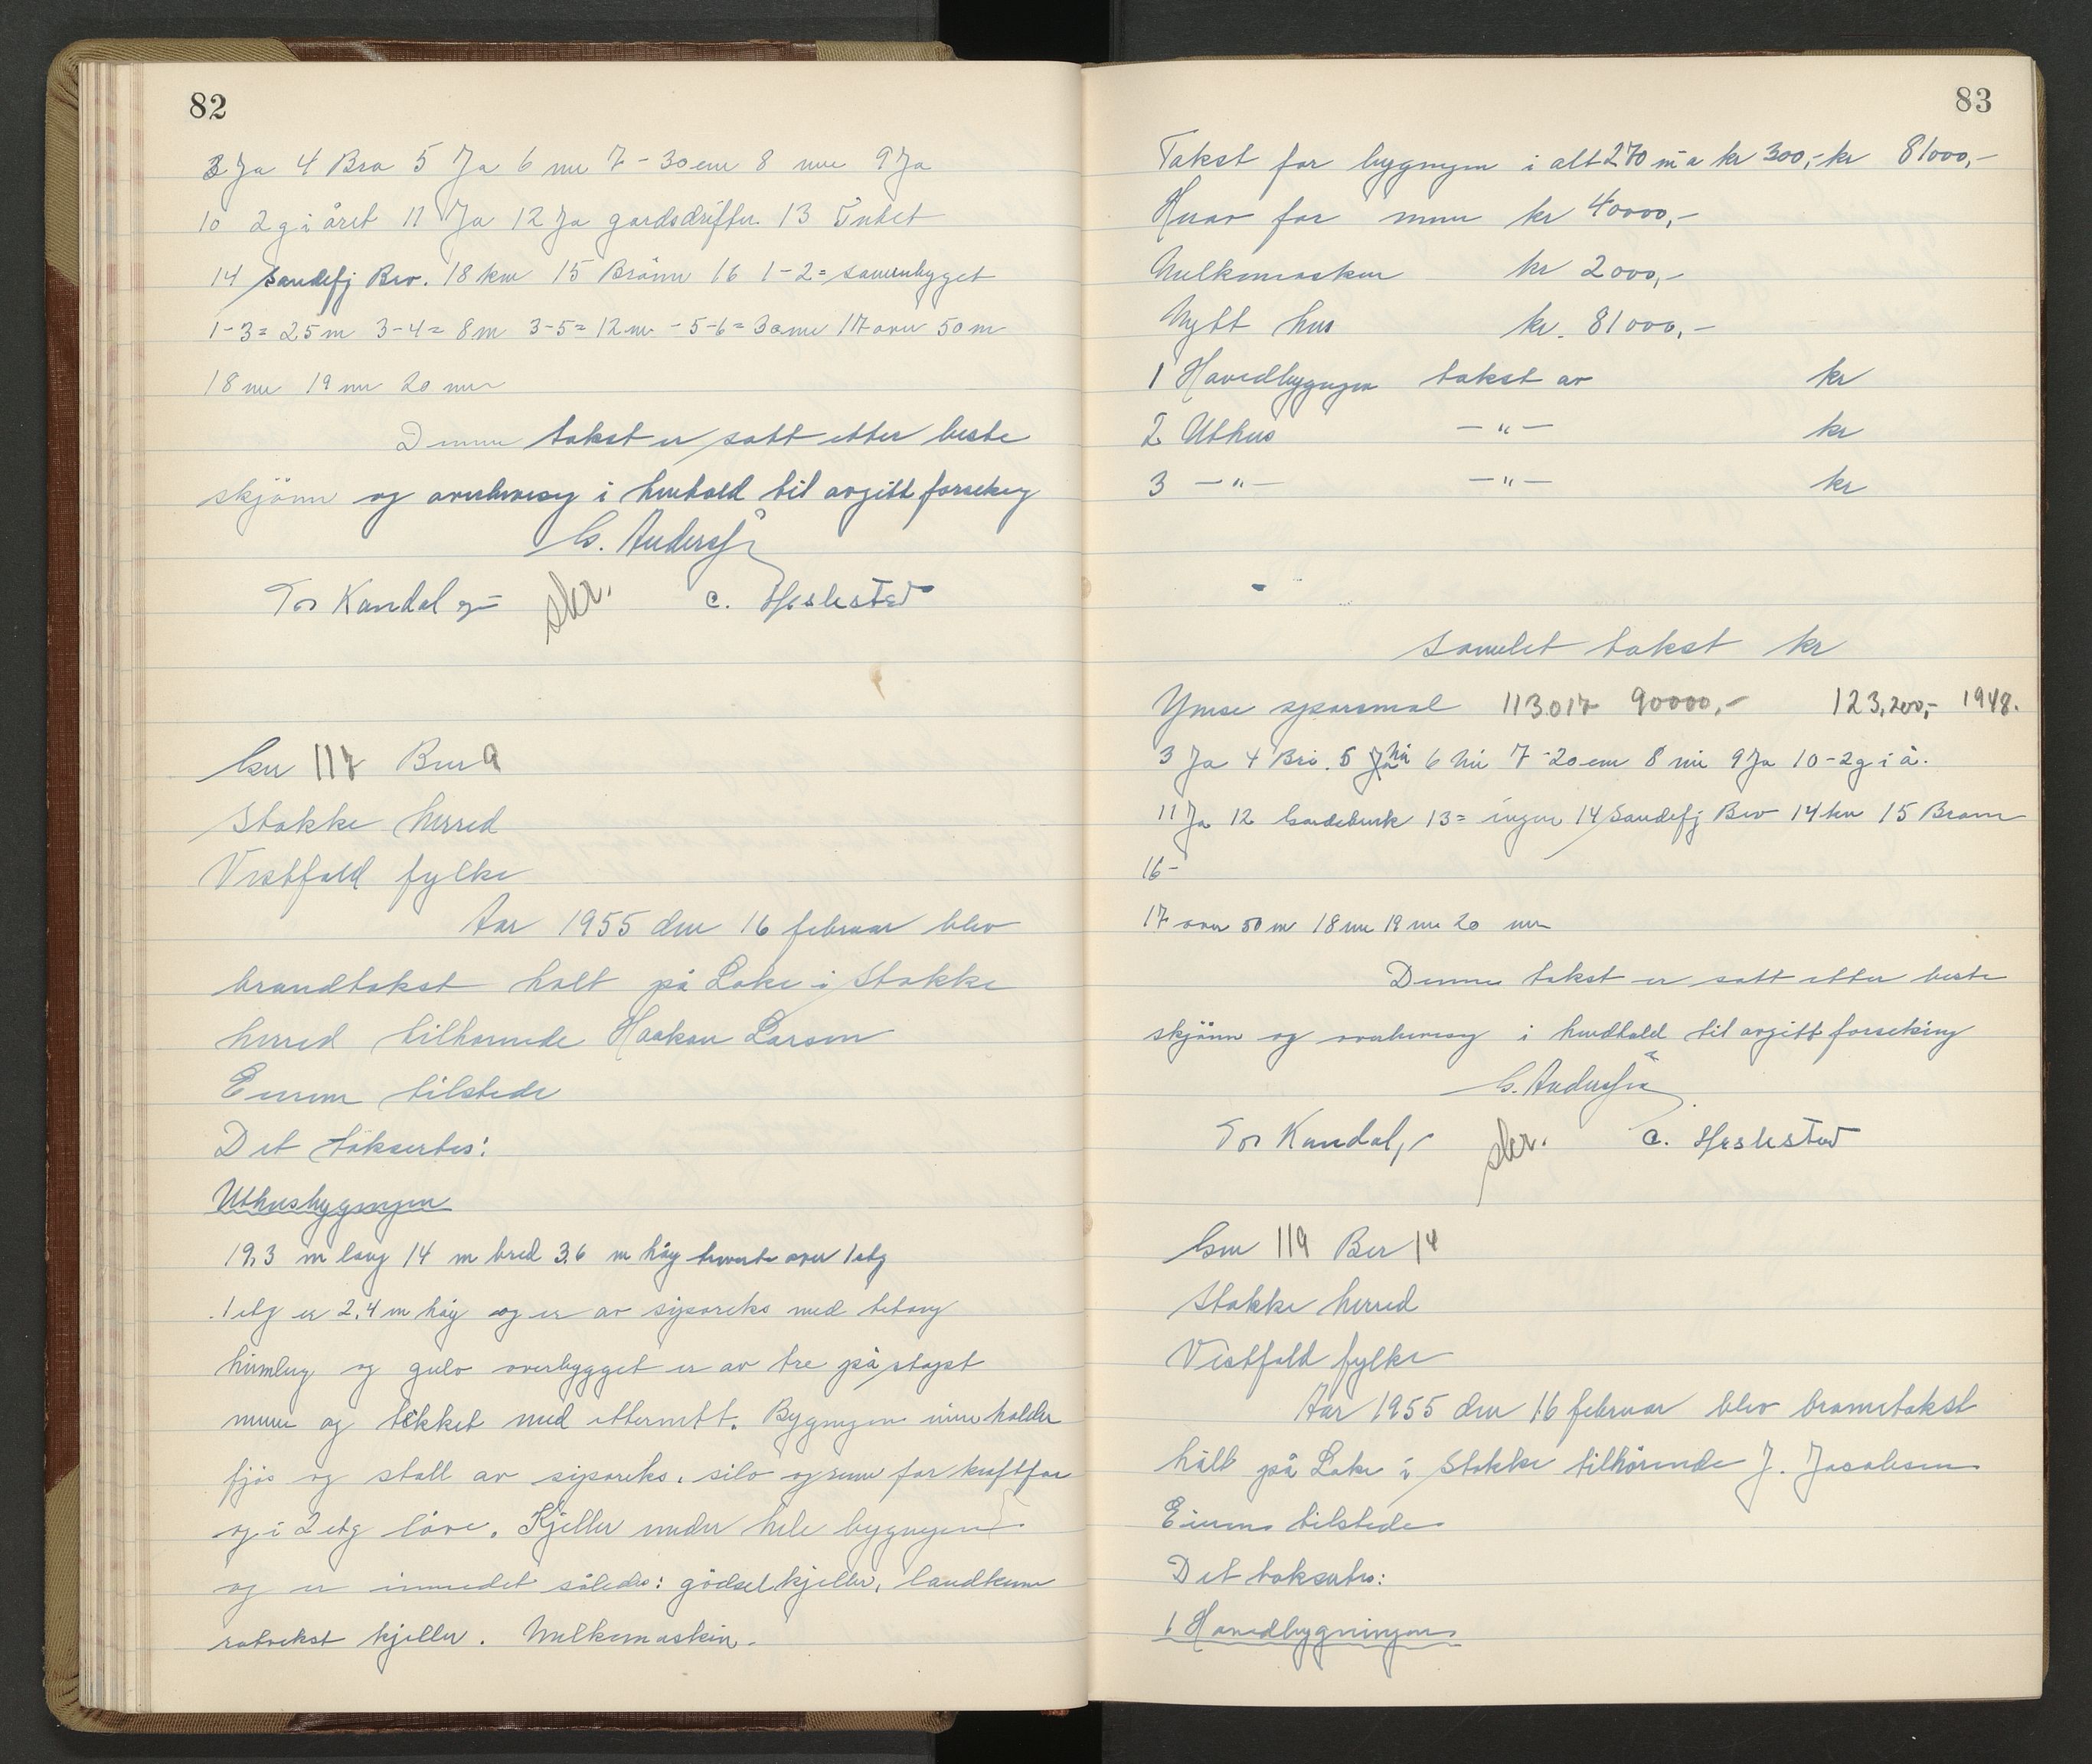 82
3 Ja 4 Bra 5 Ja 6 nei 7 - 30 cm 8 nei 9 Ja
10 2 g i året 11 Ja 12 Ja gardsdrifter 13 Intet
14 Sandefj Brv. 18 km 15 Brönn 16 1-2 = samenbygget
1-3 = 25 m 3-4 = 8 m 3-5 = 12 m - 5-6 = 30 m 17 over 50 m
18 nei 19 nei 20 nei
Denne takst er satt etter beste
skjönn og overbevisng i henhold til avgitt forsekrng
G. Anderssen
Tor Kandal skr. C. Heslested
Gnr 117 Bnr 9
Stokke herred
Vestfold fylke
Aar 1955 den 16 februar blev
brandtakst holt på Lake i Stokke
herred tilhørende Haakon Larsen
Eieren tilstede
Det taksertes:
Uthusbygnigen
19,3 m lang 14 m bred 3.6 m höy tverrts over 1 etg
1 etg er 2,4 m höy og er av siporeks med betong
himling og gulv overbygget er av tre på støpt
mur og tekket med etternitt. Bygnigen inneholder
fjös og stall av siporeks, silo og rum for kraftfor
og i 2 etg låve. Kjeller under hele bygnigen
og er innredet således: gödselkjeller, landkum
rotvekst kjeller. Melkemaskin.
83
Takst for bygnigen i alt 270 m² a kr 300,- kr 81000,-
Herav for mur kr 40000,-
Melkemaskin kr 2000,-
Nytt hus kr. 81000,-
1 Hovedbygnigen takst av kr
2 Uthus — " — kr
3 — " — — " — kr
Samlet takst kr
Ymse spørsmål 113017 90000,- 123,200,- 1948.
3 Ja 4 Bra. 5 Ja nei 6 Nei 7 - 20 cm 8 nei 9 Ja 10 - 2 g i å.
11 Ja 12 Gardsbruk 13 = ingen 14 Sandefj Brv 14 km 15 Brønn
16 -
17 over 50 m 18 nei 19 nei 20 nei
Denne takst er satt etter beste
skjönn og overbevisng i hendhold til avgitt forsekring
G. Anderssen
Tor Kandal skr. C. Heslested
Gnr 119 Bnr 14
Stokke herred
Vestfold fylke
Aar 1955 den 16 februar blev branntakst
hålt på Lake i Stokke tilhörende J. Jacobsen
Eieren tilstede
Det taksertes:
1 Hovedbygningen